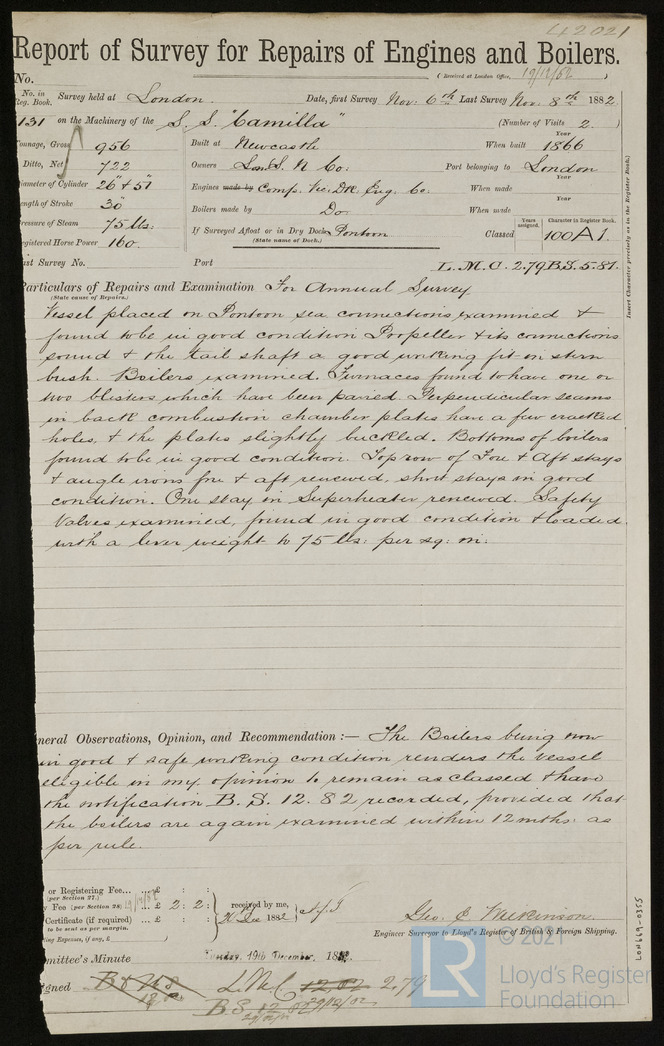 42021
Report of Survey for Repairs of Engines and Boilers.
No. (Received at London Office, 19/12/82 )
No. in Reg. Book. Survey held at London. Date, first Survey Nov: 6th Last Survey Nov. 8th 1882
131 on the Machinery of the S. S. "Camilla" (Number of Visits 2.
Tonnage, Gross 956 Built at Newcastle When built Year 1866
Ditto, Net 722 Owners S. N Co: Port belonging to London
Diameter of Cylinder 26" & 51" Engines made by Comp. Eng. Co: When made Year
Length of Stroke 30" Boilers made by Do When made Year
Pressure of Steam 75 lbs: If Surveyed Afloat or in Dry Dock Pontoon Classed Years assigned. Character in Register Book. 100 A 1.
Registered Horse Power 160. (State name of Dock.)
Insert Character precisely as in the Register Book.)
ist Survey No. Port L.M.C. 2.79 B.S. 5.81.
Particulars of Repairs and Examination For Annual Survey
(State cause of Repairs.)
Vessel placed on Pontoon sea connections examined &
found to be in good condition Propeller & its connections
sound & the tail shaft a good working fit in stern
bush. Boilers examined. Furnaces found to have one or
two blisters which have been paired. Perpendicular seams
in back combustion chamber plates have a few cracked
holes, & the plates slightly buckled. Bottoms of boilers
found to be in good condition. Top row of Fore & Aft stays
& angle irons fore & aft renewed, short stays in good
condition. One stay in Superheater renewed. Safety
Valves examined, found in good condition & loaded
with a lever weight to 75 lbs: per sq: in:
neral Observations, Opinion, and Recommendation :— The Boilers being now
in good & safe working condition renders the vessel
eligible in my opinion to remain as classed & have
the notification B. S. 12. 82 recorded, provided that
the boilers are again examined within 12 mths: as
per rule.
or Registering Fee... ... £ : :
(per Section 27.)
y Fee (per Section 28) 19/12/82 £ 2 : 2 : received by me,
Certificate (if required) ... £ : : 20 Dec 1882
to be sent as per margin.
ling Expenses, if any, £ )
Geo. E.
Engineer Surveyor to Lloyd's Register of British & Foreign Shipping.
mmittee's Minute Tuesday, 19th December, 1882.
signed L.M.C. 12.82 2.79
B.S. 12 82
LON669-0355
© 2021
LR
Lloyd's Register
Foundation